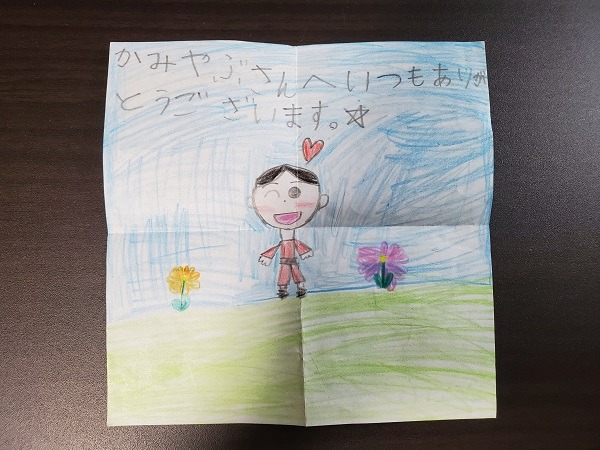 かみやぶさんへいつもありが
とうございます。☆